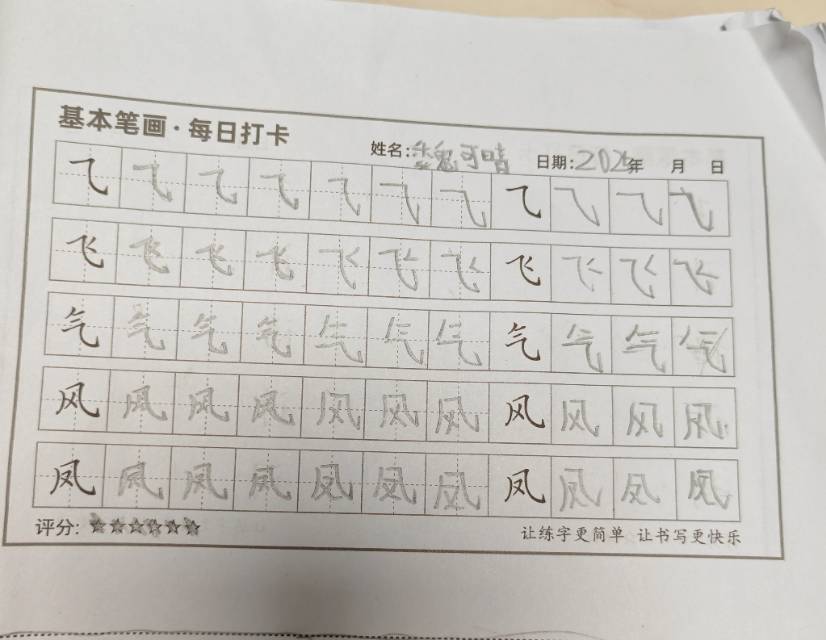 基本笔画·每日打卡
姓名:魏可晴 日期:202年 月 日
乁乁乁乁乁乁乁乁乁乁乁
飞飞飞飞飞飞飞飞飞飞飞
气气气气气气气气气气气
风风风风风风风风风风风
凤凤凤凤凤凤凤凤凤凤凤
评分:☆☆☆☆☆☆ 让练字更简单 让书写更快乐